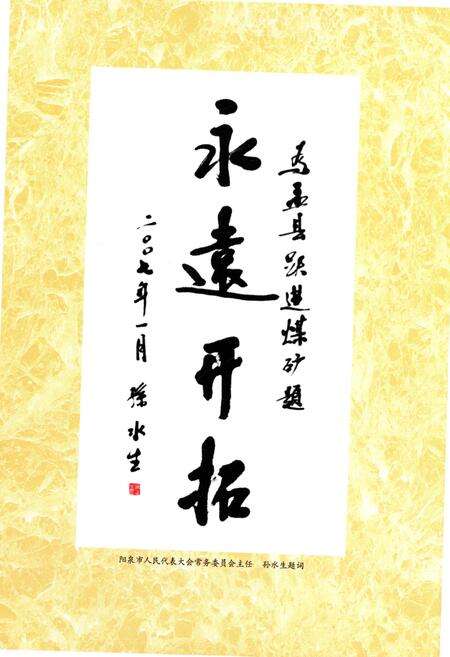 为盂县跃进煤矿题
永遠开拓
二〇〇七年一月 孙水生
阳泉市人民代表大会常务委员会主任 孙水生题词